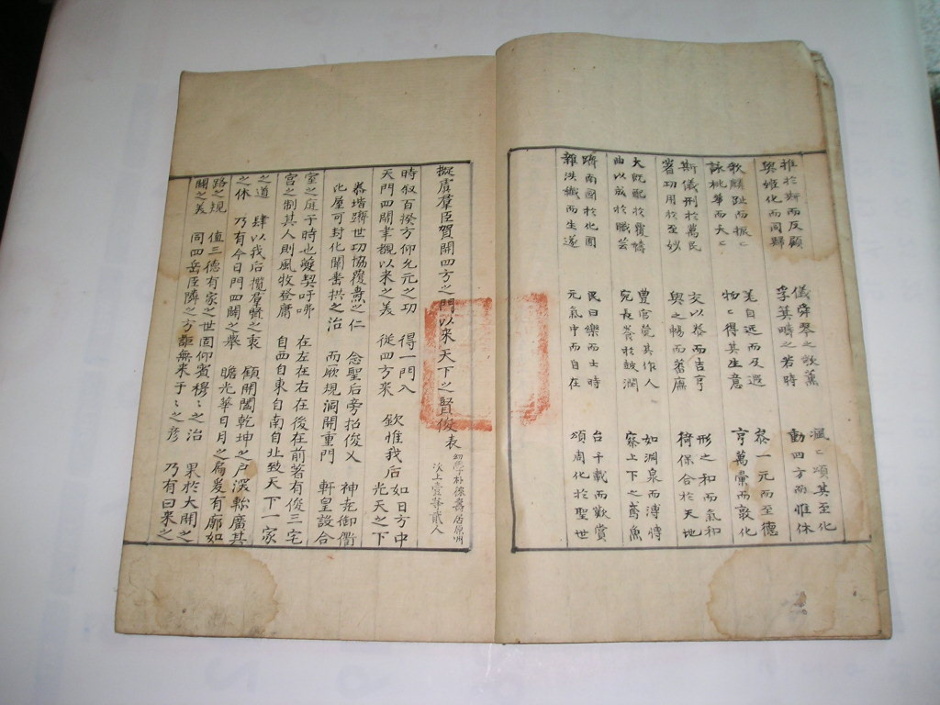 推於斯而反顧
與雄化而同歸
儀舜琴之歌薰
孚其疇之若時
渢〻頌其至化
動四方而惟休
歌麟趾而振〻
詠桃華而夭〻
美自遐而及邇
物〻得其生意
叅一元而至德
亨萬彙而敦化
斯儀刑於萬民
著功用於至妙
交以叅而吉亨
與之暢而蕃廡
形之和而氣和
猗保合於天地
大旣配於覆幬
曲以成於職芸
豊官莞其作人
宛長養於鼓潤
如淵泉而溥愽
察上下之鳶魚
躋南國於化囿
雜洪纖而生遂
民曰樂而士時
元氣中而自在
台千載而歡賞
頌周化於聖世
擬虞羣臣賀開四方之門以来天下之賢俊表
幼學朴 壽居原州
次上壹等貳人
時叙百揆方仰允元之功 得一門入 欽惟我后 如日方中
天門四闢聿覩以来之美 從四方来 光天之下
恭堦躋世功協覆燾之仁 念聖后旁招俊乂 神尭御衢
比屋可封化闡垂拱之治 而欣規洞開重門 軒皇設合
室之庭于時也夔契吁咈 在左在右在後在前著有俊三宅
宮之制其人則風牧登庸 自西自東自南自北致天下一家
之道 肆以我后攬羣賢之衷 顧開闔乾坤之户深軫廣其
之休 乃有今日門四闢之擧 瞻光華日月之扃爰有廓如
路之規 值三德有家之世固仰賓穆〻之治 果於大開之
闢之美 同四岳臣隣之方詎無来于〻之彦 乃有曰来之